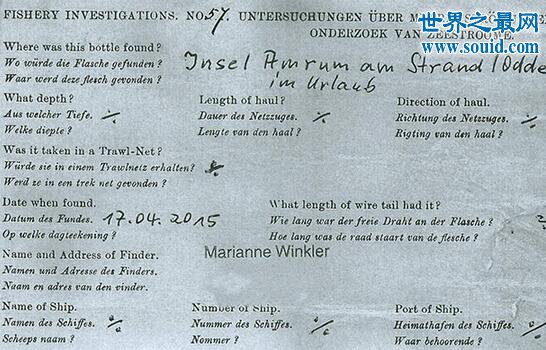 世界之最
www.souid.com
FISHERY INVESTIGATIONS. NO 57. UNTERSUCHUNGEN ÜBER
ONDERZOEK VAN ZEESTROOME.
Where was this bottle found?
Wo würde die Flasche gefunden?
Waar werd deze flesch gevonden?
Insel Amrum am Strand (Odde
im Urlaub
What depth?
Aus welcher Tiefe.
Welke diepte?
Length of haul?
Dauer des Netzzuges.
Lengte van den haal?
Direction of haul.
Richtung des Netzzuges.
Rigting van den haal?
Was it taken in a Trawl-Net?
Würde sie in einem Trawlnetz erhalten?
Werd ze in een trek net gevonden?
Date when found.
Datum des Fundes. 17.04.2015
Op welke dagteekening?
What length of wire tail had it?
Wie lang war der freie Draht an der Flasche?
Hoe lang was de raad staart van de flesche?
Name and Address of Finder.
Namen und Adresse des Finders.
Naam en adres van den vinder.
Marianne Winkler
Name of Ship.
Namen des Schiffes.
Scheeps naam?
Number of Ship.
Nummer des Schiffes.
Nommer?
Port of Ship.
Heimathafen des Schiffes.
Waar behoorende?